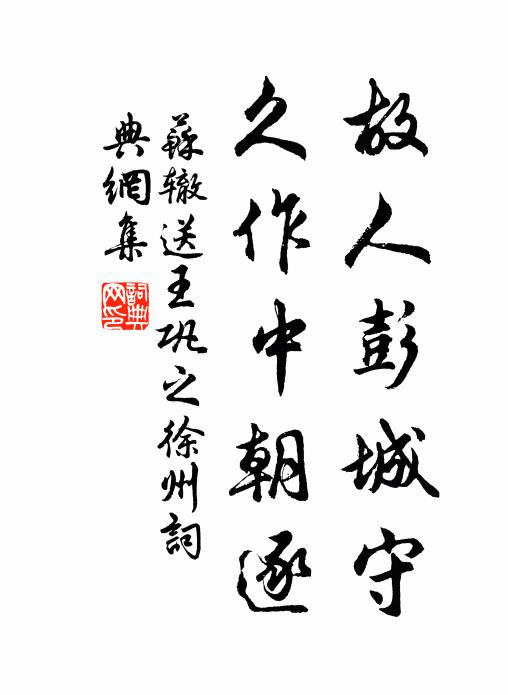 故人彭城守
久作中朝逐
蘇辙送王巩之徐州詞
典網集
詞典
网印